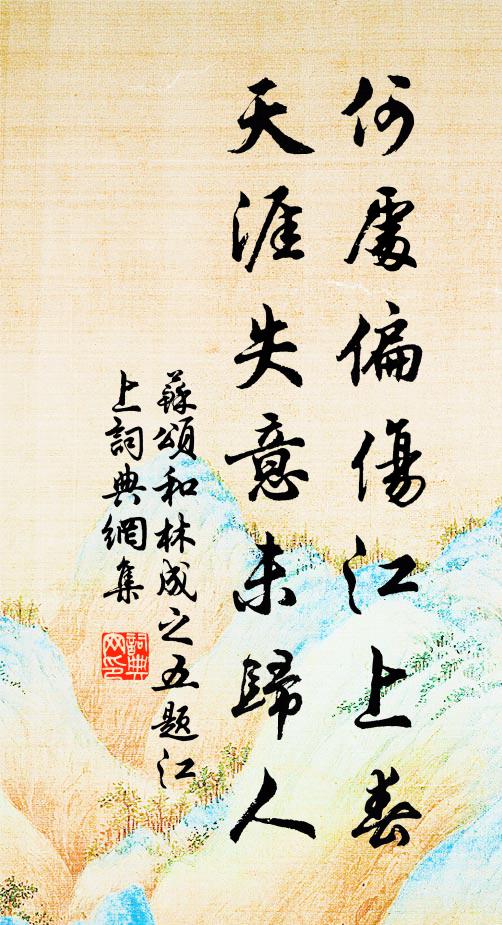 何處偏傷江上春
天涯失意未歸人
蘇頌和林成之五題江
上詞典網集
詞典网印